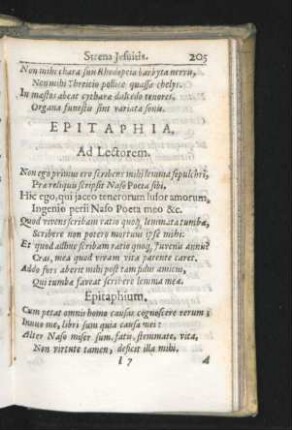 Strena Jesuitis. 205
Non mihi chara sun Rhodopeia barbyta nervis,
Non mihi Threicio pollice quassa chelys.
In mæstos abeat cytharæ dulcedo tenores,
Organa funestis sint variata sonis.
EPITAPHIA.
Ad Lectorem.
Non ego primus ero scribens mihi lemma sepulchri,
Præ reliquis scripsit Naso Poeta sibi,
Hic ego, qui jaceo tenerorum lusor amorum,
Ingenio perii Naso Poeta meo &c.
Quod vivens scribam ratio quoq; lemma tatumbæ,
Scribere non potero mortuus ipse mihi.
Et quod adhuc scribam ratio quoq; juvenis annis?
Cras, mea quod vivam vita parente caret.
Addo fors aberit mihi post tam fidus amicus,
Qui tumbæ faveat scribere lemma meæ.
Epitaphium.
Cum petat omnis homo causas cognoscere rerum;
Innuo me, libri sum quia causa mei:
Alter Naso miser sum, fatis, stemmate, vita,
Non virtute tamen, deficit illa mihi.
I 7 A